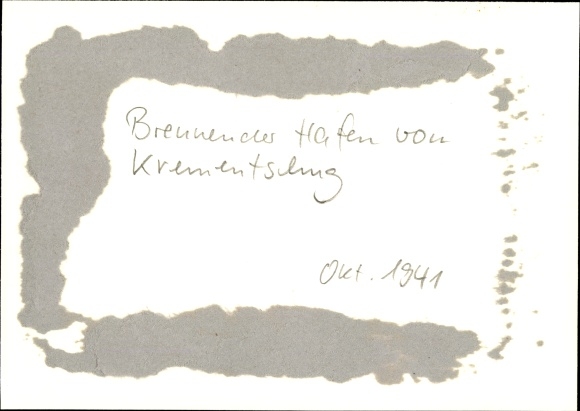 Brennender Hafen von
Krementschug
Okt. 1941